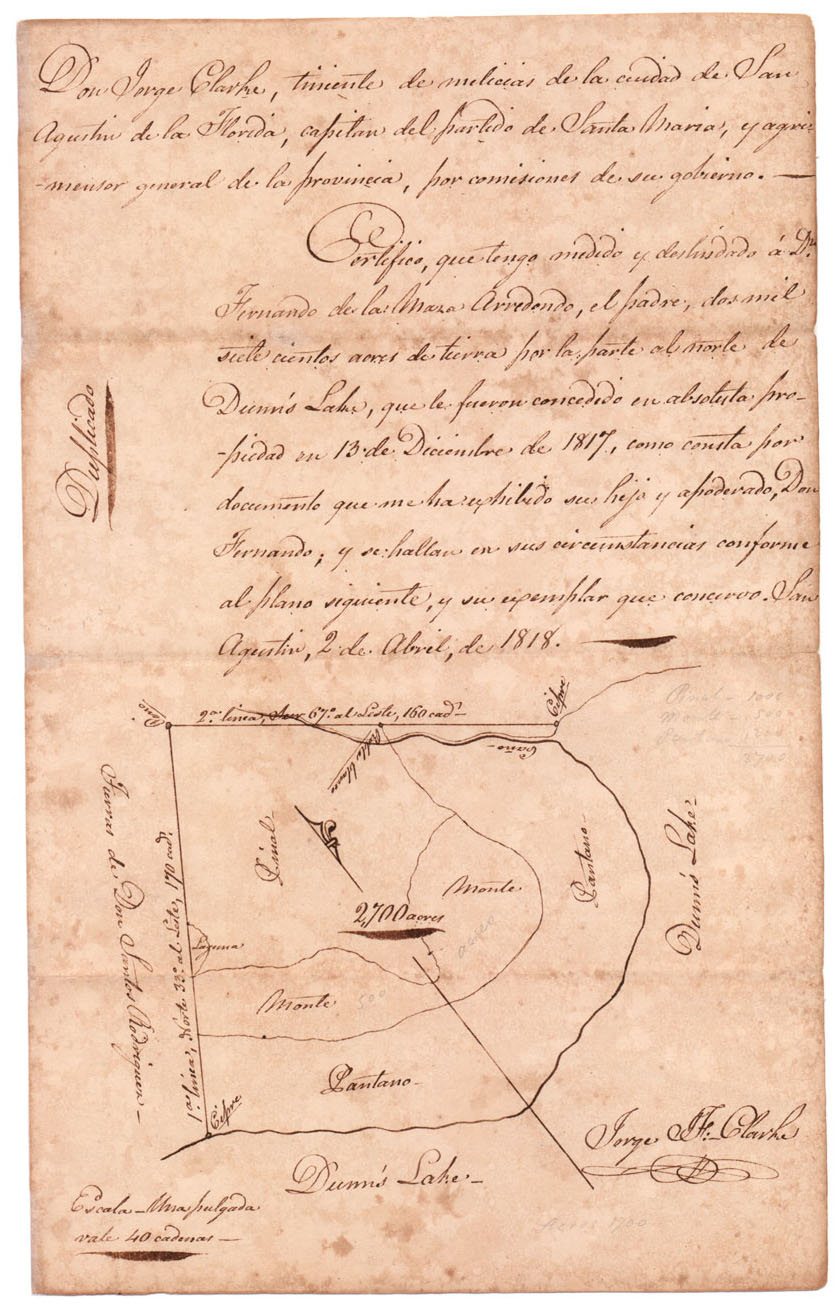 Don Jorge Clarke, tiniente de milicias de la ciudad de San
Agustin de la Florida, capitan del partido de Santa Maria, y agri-
-mensor general de la provincia, por comisiones de su gobierno. —
Certifico, que tengo medido y deslindado á Dn
Fernando de la Maza Arredondo, el padre, dos mil
siete cientos acres de tierra por la parte al norte de
Dunn's Lake, que le fueron concedido en absoluta pro-
-piedad en 13 de Diciembre de 1817, como consta por
documento que me ha exhibido su hijo y apoderado, Don
Fernando; y se hallan en sus circumstancias conforme
al plano siguiente, y su exemplar que concervo. San
Agustin, 2 de Abril, de 1818. —
Duplicado
Pino
2a. linea, Sur 67° al Leste, 160 cads.
Cipre
Roble blanco
Caño
Pinal - 1000
Monte - 500
1200
2700
Tierras de Don Santos Rodriguez —
1a. linea, Norte 33° al Leste, 170 cads.
Pinal
Monte
Pantano
Dunn's Lake -
2,700 acres
acres
Laguna
Monte
500
Pantano
Cipre
Dunn's Lake -
Jorge J. F. Clarke
Escala - Una pulgada
vale 40 cadenas —
Acres